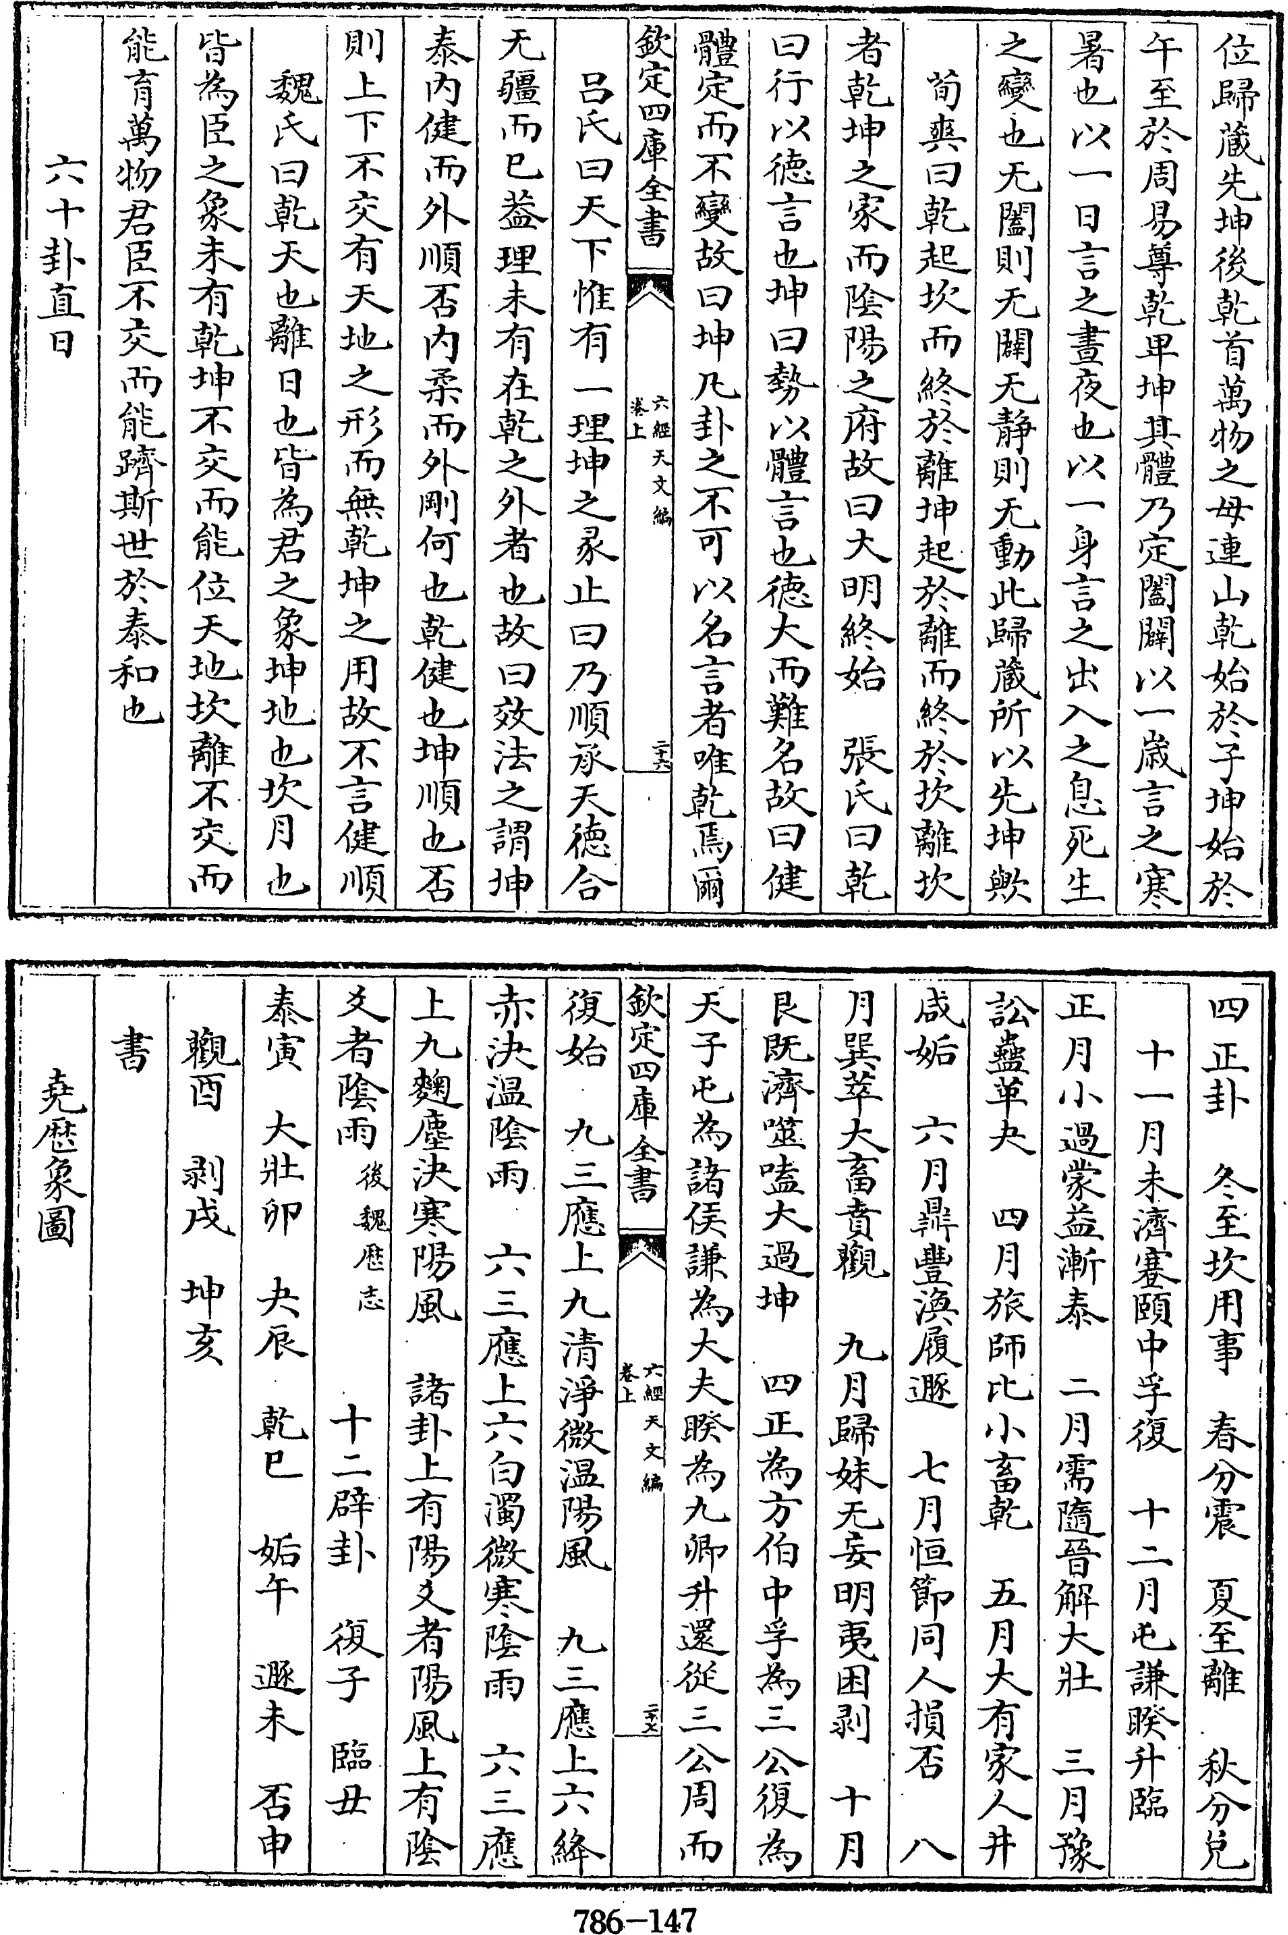 位歸藏先坤後乾首萬物之母連山乾始於子坤始於
午至於周易尊乾卑坤其體乃定闔闢以一歲言之寒
暑也以一日言之晝夜也以一身言之出入之息死生
之變也无闔則无闢无靜則无動此歸藏所以先坤歟
荀爽曰乾起坎而終於離坤起於離而終於坎離坎
者乾坤之家而陰陽之府故曰大明終始　張氏曰乾
曰行以德言也坤曰勢以體言也德大而難名故曰健
體定而不變故曰坤凡卦之不可以名言者唯乾焉爾
欽定四庫全書　六經天文編　卷上　二十六
呂氏曰天下惟有一理坤之彖止曰乃順承天德合
无疆而已葢理未有在乾之外者也故曰效法之謂坤
泰內健而外順否內柔而外剛何也乾健也坤順也否
則上下不交有天地之形而無乾坤之用故不言健順
魏氏曰乾天也離日也皆為君之象坤地也坎月也
皆為臣之象未有乾坤不交而能位天地坎離不交而
能育萬物君臣不交而能躋斯世於泰和也
六十卦直日
四正卦　冬至坎用事　春分震　夏至離　秋分兌
十一月未濟蹇頤中孚復　十二月屯謙睽升臨
正月小過蒙益漸泰　二月需隨晉解大壯　三月豫
訟蠱革夬　四月旅師比小畜乾　五月大有家人井
咸姤　六月鼎豐渙履遯　七月恒節同人損否　八
月巽萃大畜賁觀　九月歸妹无妄明夷困剥　十月
艮既濟噬嗑大過坤　四正為方伯中孚為三公復為
天子屯為諸侯謙為大夫睽為九卿升還從三公周而
欽定四庫全書　六經天文編　卷上　二十七
復始　九三應上九清淨微温陽風　九三應上六絳
赤決温陰雨　六三應上六白濁微寒陰雨　六三應
上九麴塵決寒陽風　諸卦上有陽爻者陽風上有陰
爻者陰雨後魏歴志　十二辟卦　復子　臨丑
泰寅　大壯卯　夬辰　乾巳　姤午　遯未　否申
觀酉　剥戌　坤亥
書
堯歴象圖
786-147